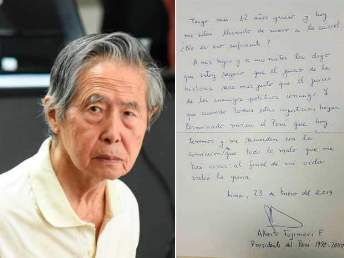 Tengo más 12 años preso y hoy
me están llevando de nuevo a la cárcel.
¿No es eso suficiente?
A mis hijos y a mis nietos les digo
que estoy seguro que el juicio de la
historia será más justo que el juicio
de los enemigos políticos conmigo. Y
que cuando todas estas injusticias hayan
terminado miren el Perú que hoy
tenemos y me recuerden con la
convicción que todo lo malo que me
han hecho al final de mi vida
valió la pena.
Lima, 23 de Enero del 2019
Alberto Fujimori F.
Presidente del Perú 1990-2000